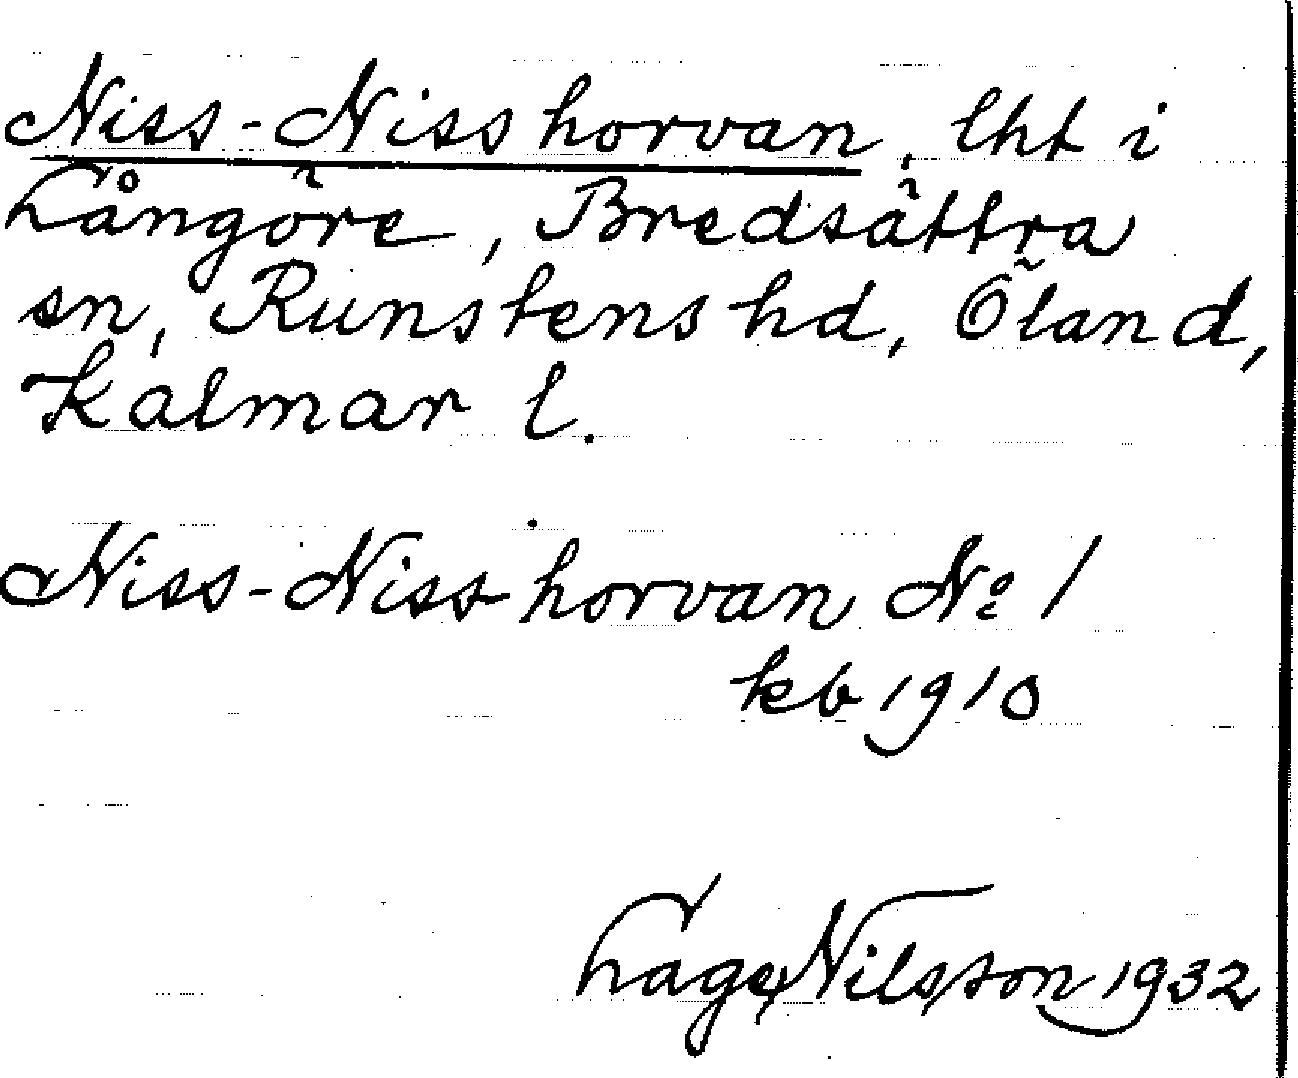 Niss-Nisshorvan, lht i
Långöre, Bredsättra
sn, Runstens hd, Öland,
Kalmar l.
Niss-Nisshorvan No 1
kb 1910
Lage Nilsson 1932